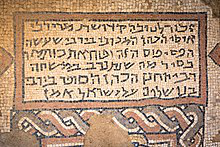 זכור לטובה קדושת מרי רבי
אוסי הכהן המכובד בירבי שעשה
הפסיפס הזה וטח את כותליו
בסיד מה שנתנדב במשתה
רבי יוחנן הכהן הסופר בירבי
בנו שלום על ישראל אמן